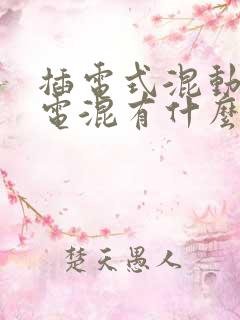 插電式混動
電混有什麼
楚天愚人